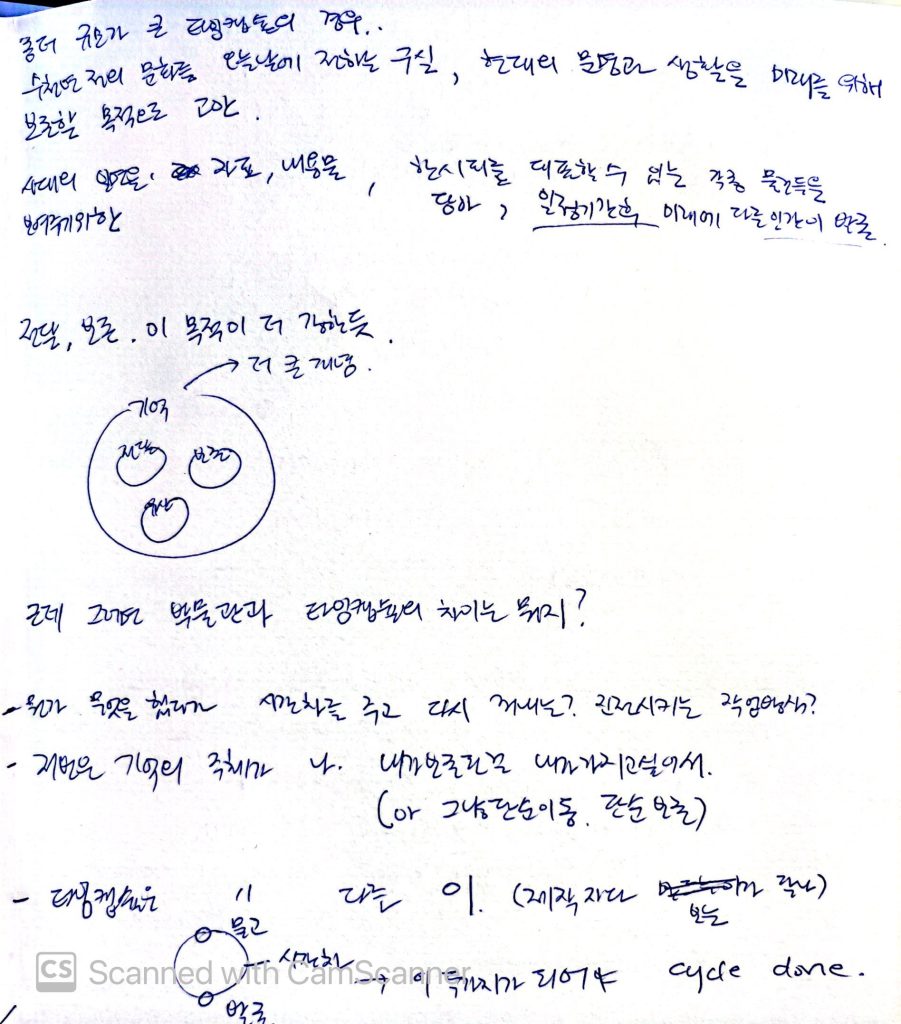 좀더 규모가 큰 타임캡슐의 경우..
수천년 전의 문화를 오늘날에 전하는 구실, 현대의 문명과 생활을 미래를 위해
보존할 목적으로 고안.
시대의 자료, 내용물, 한시대를 대표할 수 있는 각종 물건들을
보여주기위한 담아, 일정기간후 미래에 다른 인간이 발굴.
전달, 보존. 이 목적이 더 강한듯.
더 큰 개념.
기억
전달 보존
유산
근데 그러면 박물관과 타임캡슐의 차이는 뭐지?
- 뭔가 무엇을 했다가 시간차를 주고 다시 꺼내는? 진전시키는 작업방식?
- 저번은 기억의 주체가 나. 내가 내가가지고싶어서.
(or 그냥단순이동. 단순 보존)
- 타임캡슐은 〃 다른 이. (제작자다 보는 가 달라)
묻고
시간차 → 이 가 되어야 cycle done.
발굴.
CS Scanned with CamScanner